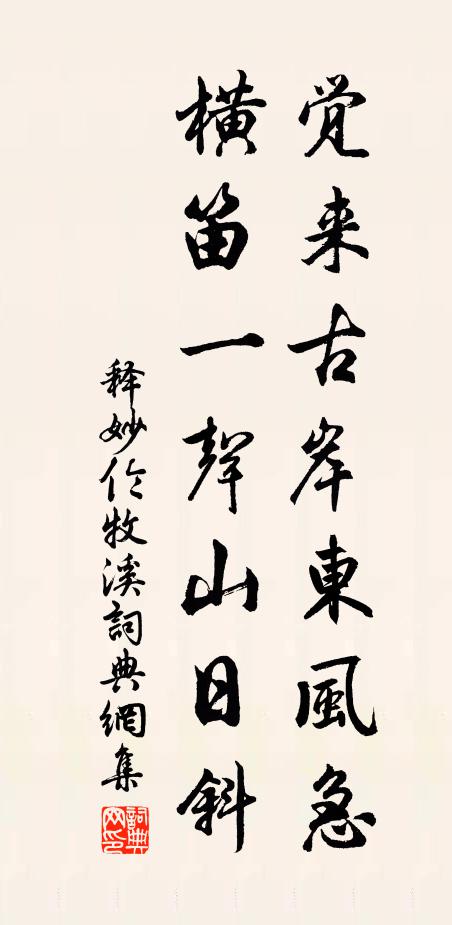 觉来古岸東風急
横笛一聲山日斜
释妙伦牧溪詞典網集
詞典網印